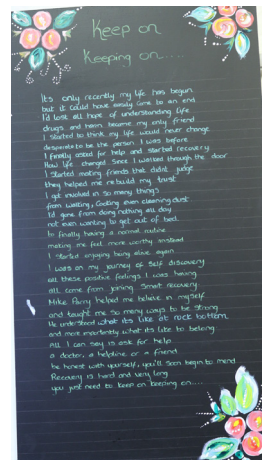 Keep on
Keeping on....
Its only recently my life has begun
but it could have easily come to an end
I'd lost all hope of understanding life
drugs and harm became my only friend
I started to think my life would never change
desperate to be the person I was before
I finally asked for help and started recovery
How life changed since I walked through the door
I started making friends that didnt judge
they helped me rebuild my trust
I got involved in so many things
from writing, Cooking even cleaning dust
I'd gone from doing nothing all day
not even wanting to get out of bed
In finally having a normal routine
making me feel more worthy instead
I started enjoying being alive again
I was on my journey of self discovery
all these positive feelings I was having
all come from joining Smart recovery
Mike Parry helped me believe in myself
and taught me so many ways to be strong
He understood what its like at rock bottom
and more importantly what its like to belong
All I can say is ask for help
a doctor, a helpline or a friend
be honest with yourself, you'll soon begin to mend
Recovery is hard and very long
you just need to keep on keeping on....